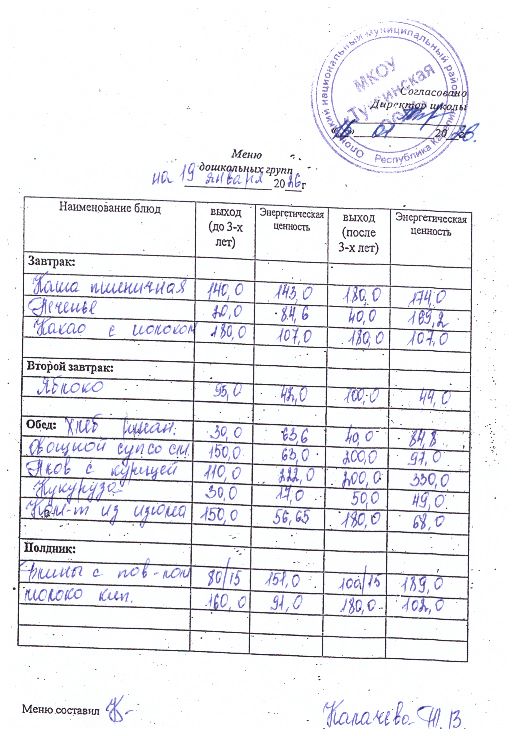 МКОУ
Республика
Согласовано
Директор школы
«16» 01 2026.
Меню
дошкольных групп
на 19 января 2026г
Наименование блюд выход (до 3-х лет) Энергетическая ценность выход (после 3-х лет) Энергетическая ценность
Завтрак:
Каша пшеничная 140,0 143,0 180,0 174,0
Печенье 20,0 84,6 40,0 169,2
Какао с молоком 180,0 107,0 180,0 107,0
Второй завтрак:
Яблоко 95,0 42,0 100,0 44,0
Обед: Хлеб пшен. 30,0 63,6 40,0 84,8
Овощной суп со см. 150,0 63,0 200,0 97,0
Плов с курицей 110,0 222,0 200,0 330,0
Кукуруза 30,0 17,0 50,0 49,0
Комп-т из изюма 150,0 56,65 180,0 68,0
Полдник:
Блины с пов-лом 80/15 151,0 100/15 189,0
молоко кип. 160,0 91,0 180,0 102,0
Меню составил